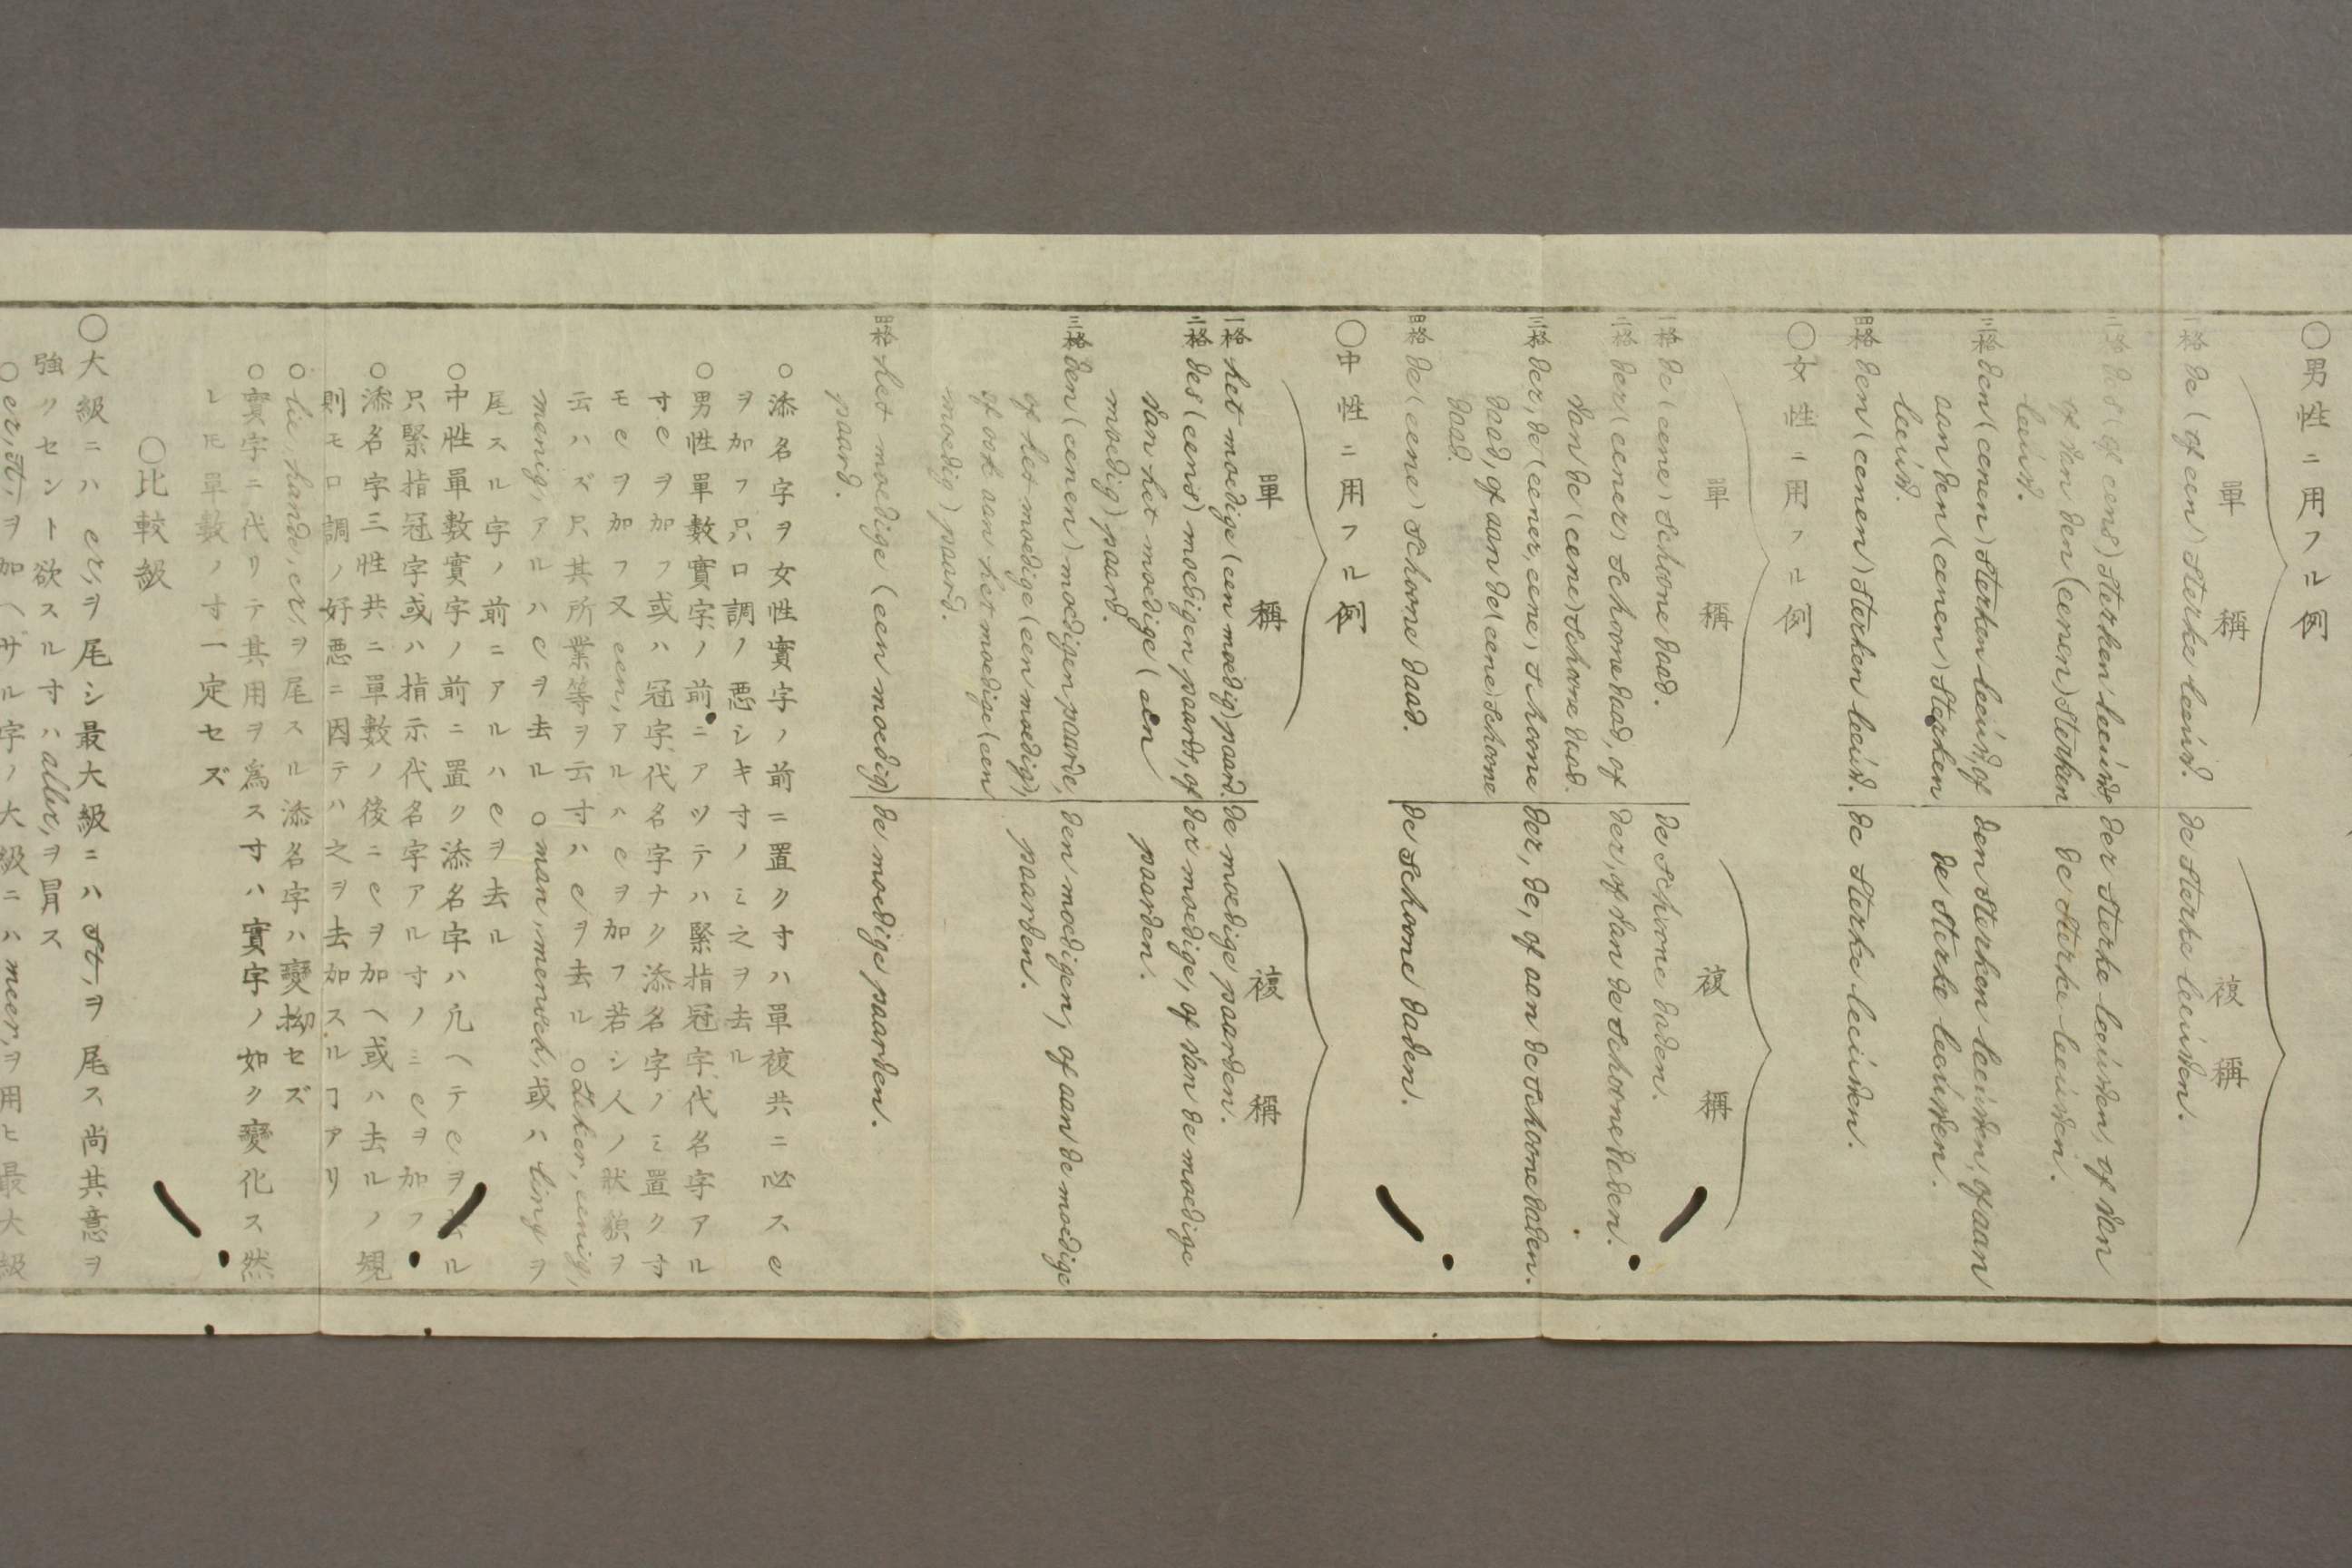 ○男性ニ用フル例
單稱
一格 de (of een) sterke leeuw.
二格 des (of eens) sterken leeuws,
of van den (eenen) sterken
leeuw.
三格 den (eenen) sterken leeuw, of
aan den (eenen) sterken
leeuw.
四格 den (eenen) sterken leeuw.
複稱
de sterke leeuwen.
der sterke leeuwen, of van
de sterke leeuwen.
den sterken leeuwen, of aan
de sterke leeuwen.
de sterke leeuwen.
○女性ニ用フル例
單稱
一格 de (eene) schoone daad.
二格 der (eener) schoone daad, of
van de (eene) schoone daad.
三格 der, de (eener, eene) schoone
daad, of aan de (eene) schoone
daad.
四格 de (eene) schoone daad.
複稱
de schoone daden.
der, of van de schoone daden.
der, de, of aan de schoone daden.
de schoone daden.
○中性ニ用フル例
單稱
一格 het moedige (een moedig) paard.
二格 des (eens) moedigen paards, of
van het moedige (een
moedig) paard.
三格 den (eenen) moedigen paarde,
of het moedige (een moedig),
of ook aan het moedige (een
moedig) paard.
四格 het moedige (een moedig)
paard.
複稱
de moedige paarden.
der moedige, of van de moedige
paarden.
den moedigen, of aan de moedige
paarden.
de moedige paarden.
○添名字ヲ女性實字ノ前ニ置ク寸ハ單複共ニ必スe
ヲ加フ只口調ノ悪シキ寸ノミ之ヲ去ル
○男性單數實字ノ前ニアツテハ緊指冠字代名字アル
寸eヲ加フ或ハ冠字代名字ナク添名字ノミ置ク寸
モeヲ加フ又een,アルハeヲ加フ若シ人ノ狀貌ヲ
云ハズ只其所業等ヲ云寸ハeヲ去ル ○zeker, eenig,
menig,アルハeヲ去ル ○man, mensch,或ハlingヲ
尾スル字ノ前ニアルハeヲ去ル
○中性單數實字ノ前ニ置ク添名字ハ凢ヘテeヲ去ル
只緊指冠字或ハ指示代名字アル寸ノミeヲ加フ
○添名字三性共ニ單數ノ後ニeヲ加ヘ或ハ去ルノ規
則モ口調ノ好悪ニ因テハ之ヲ去加スルヿアリ
○lie, hande, er,ヲ尾スル添名字ハ變拗セズ
○實字ニ代リテ其用ヲ爲ス寸ハ實字ノ如ク變化ス然
レ𪜈單數ノ寸一定セズ
○比較級
○大級ニハer,ヲ尾シ最大級ニハst,ヲ尾ス尚其意ヲ
強クセント欲スル寸ハaller,ヲ冐ス
○er, st,ヲ加ヘサル字ノ大級ニハmeer,ヲ用ヒ最大級